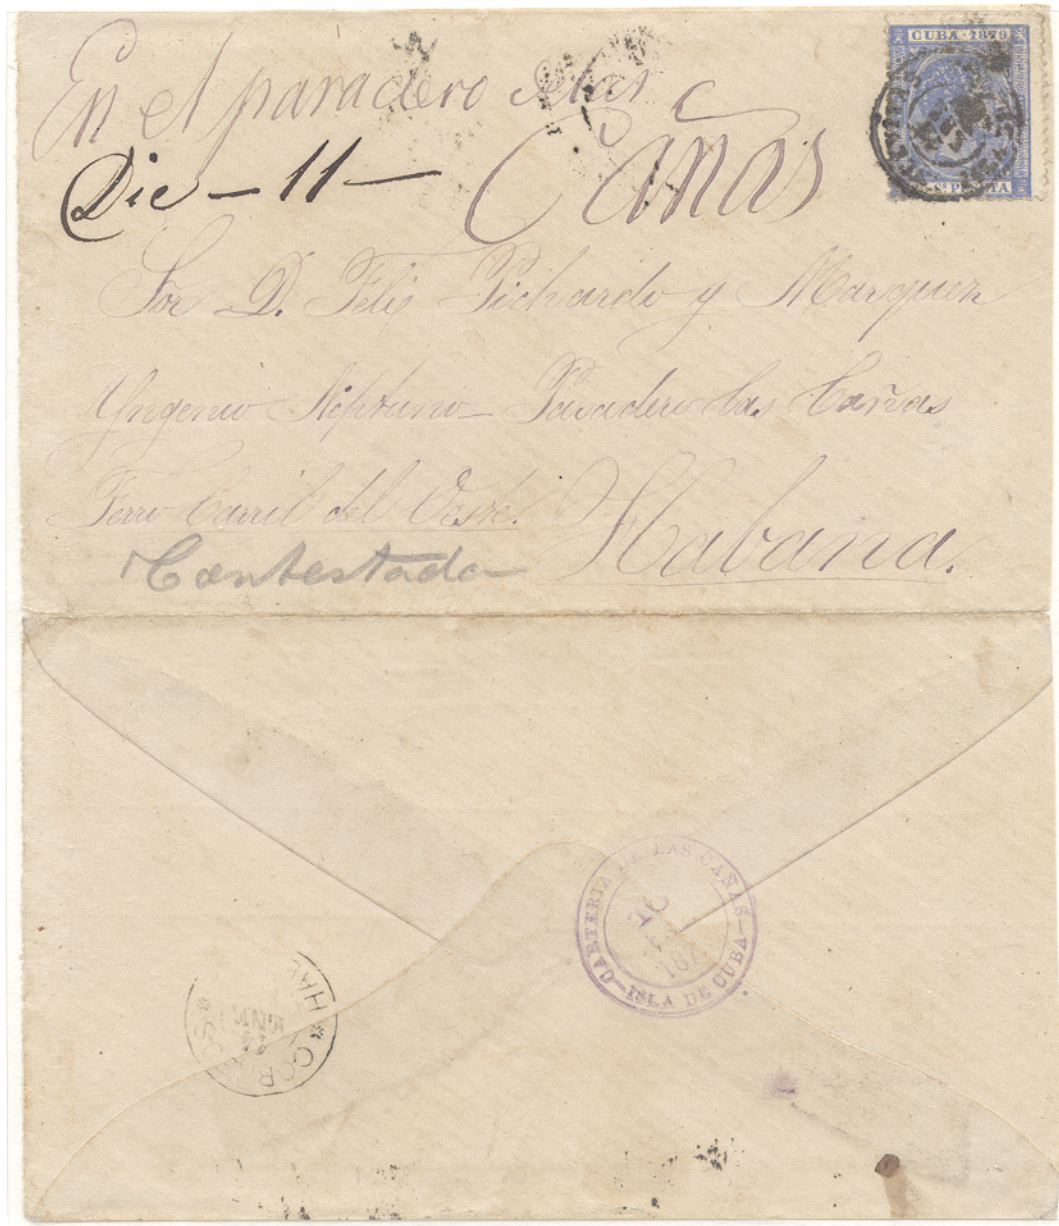 CUBA · 1879
En el paradero de las
Cañas
Dic - 11 -
Sor D. Felix Pichardo y Marquez
Yngenio Neptuno Paradero las Cañas
Ferro Carril del Oeste.
Habana.
Contestada
CARTERIA DE LAS CAÑAS
10
187
ISLA DE CUBA